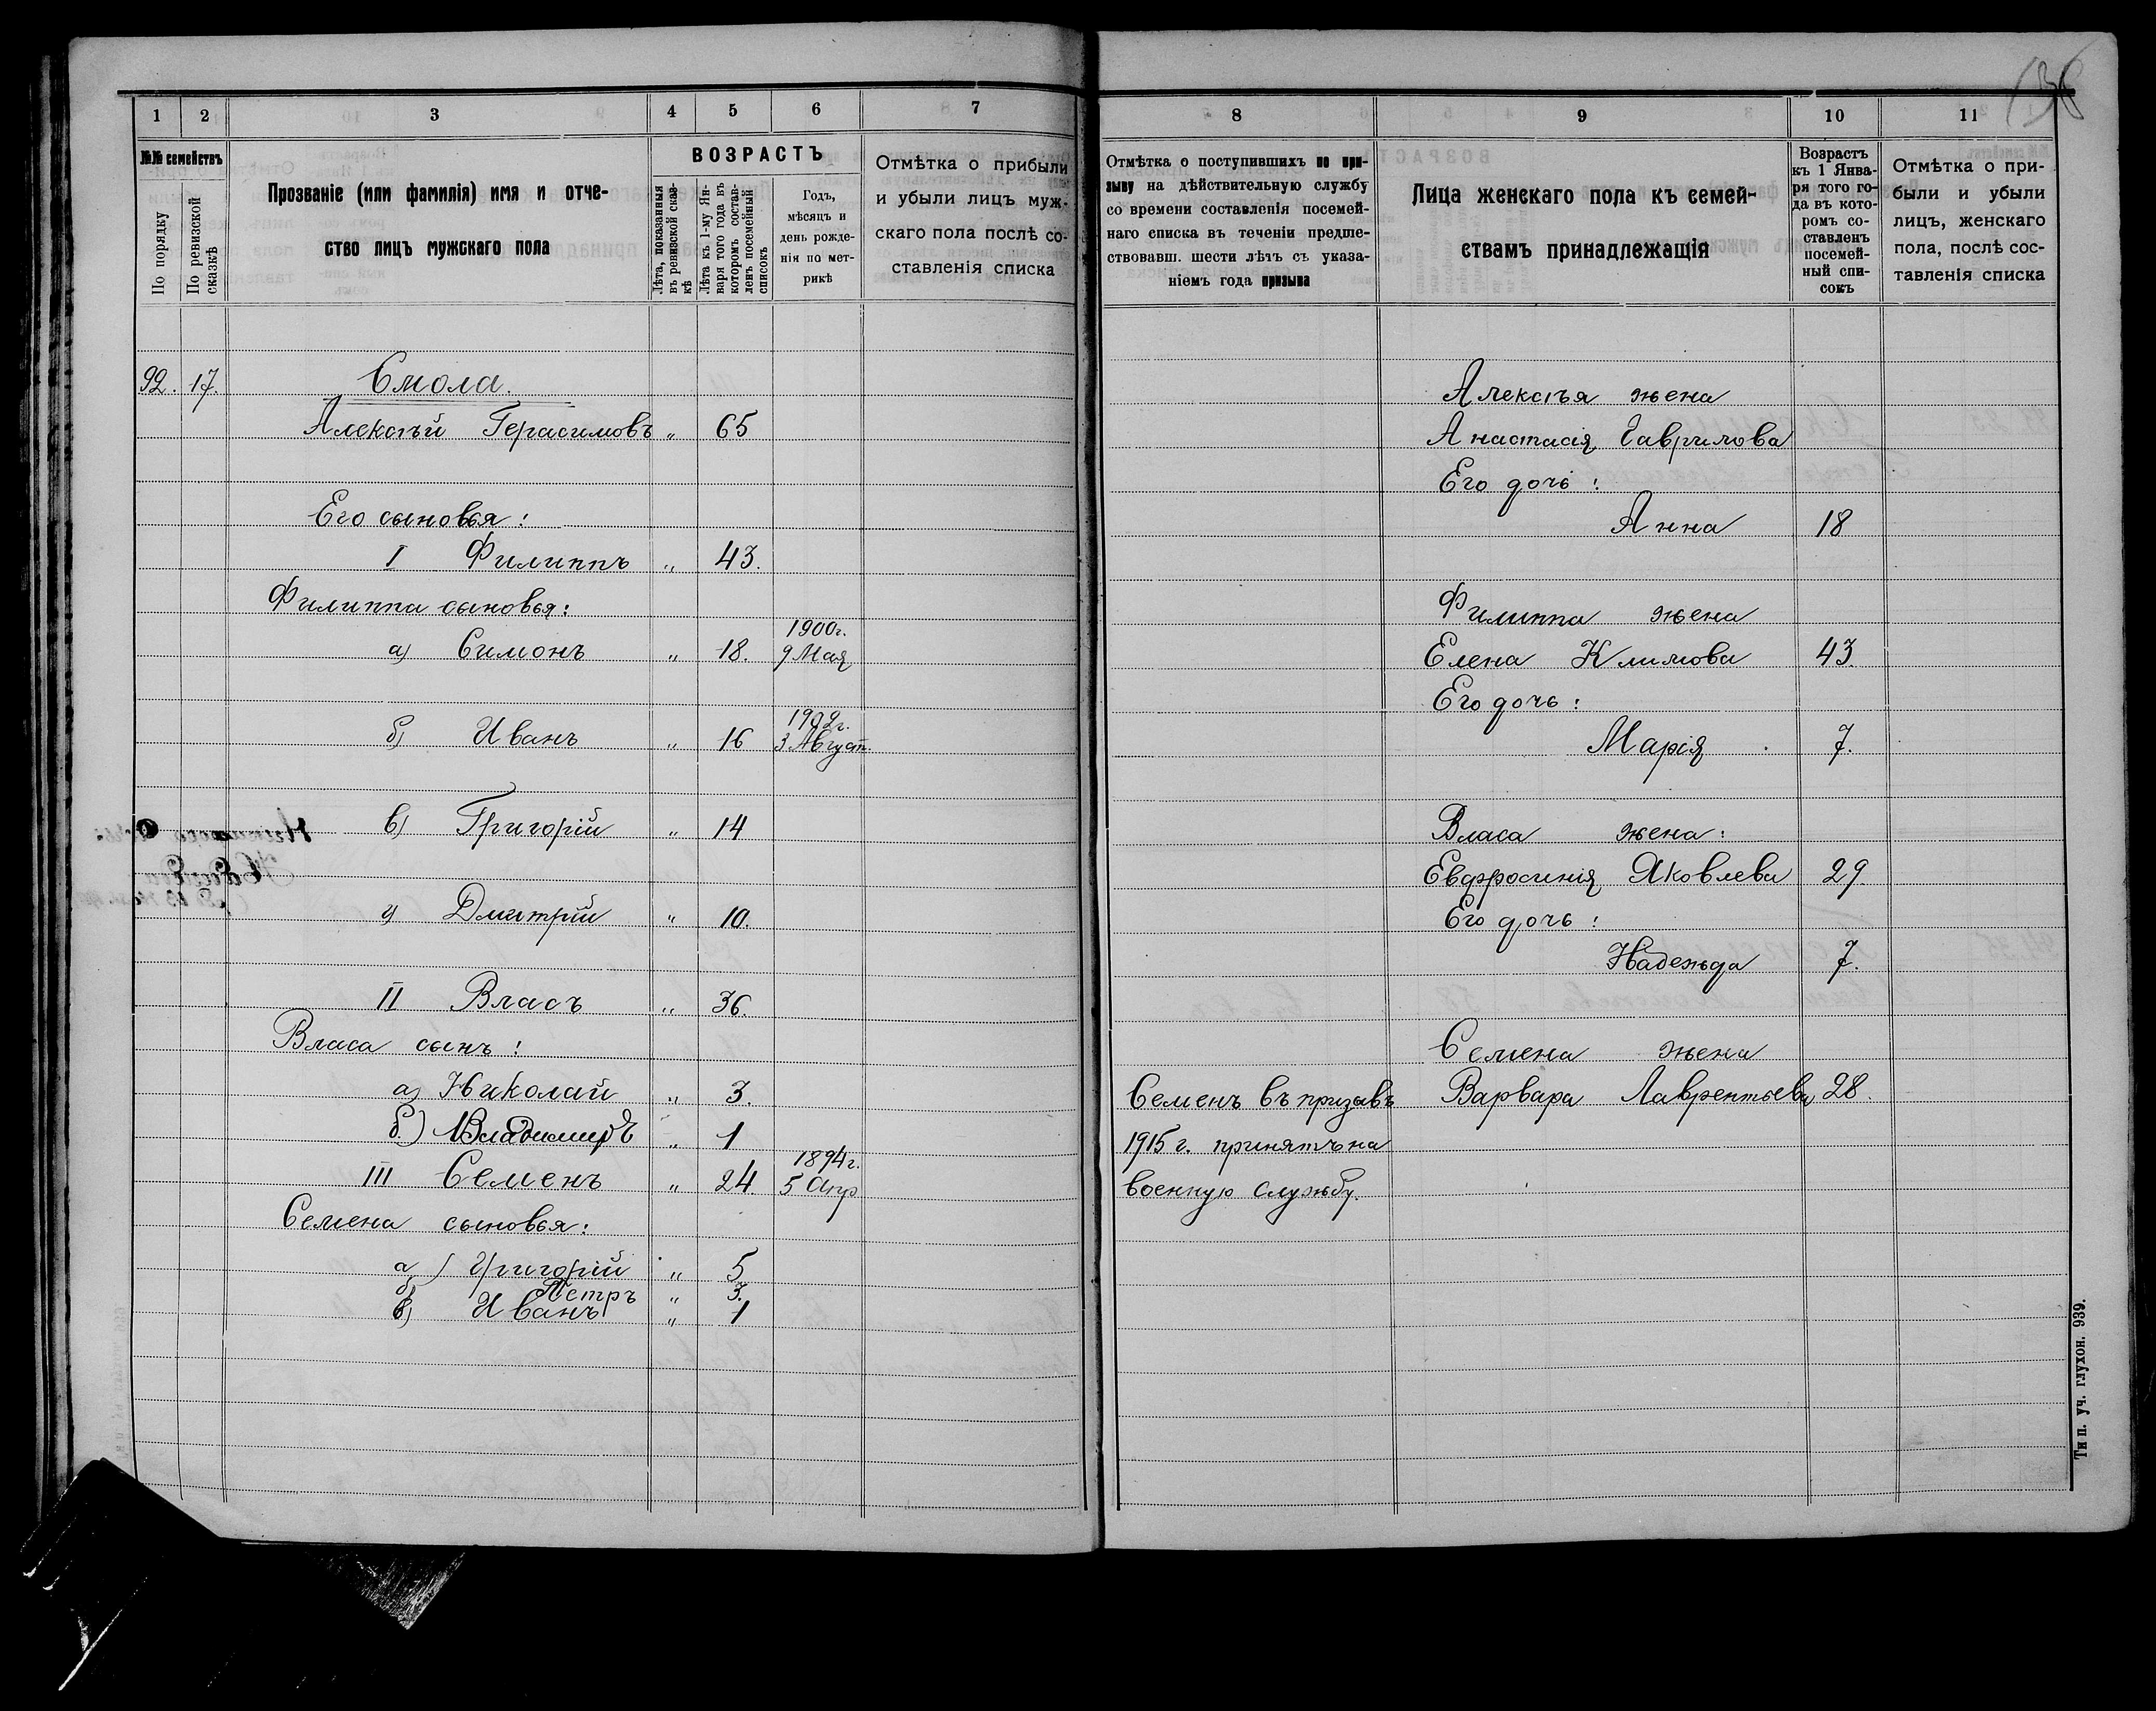 1 2 3 4 5 6 7
№№ семействъ
По порядку
По ревизской сказкѣ
Прозваніе (или фамилія) имя и отче-
ство лицъ мужскаго пола
ВОЗРАСТЪ
Лѣта, показанныя въ ревизской сказ-кѣ
Лѣта къ 1-му Ян-варя того года въ которомъ состав-ленъ посемейный списокъ
Годъ,
мѣсяцъ и
день рожде-
нія по мет-
рикѣ
Отмѣтка о прибыли
и убыли лицъ муж-
скаго пола послѣ со-
ставленія списка
92. 17. Смола.
Алексѣй Герасимовъ „ 65
Его сыновья:
I Филиппъ „ 43.
Филиппа сыновья:
1900г.
а) Симонъ „ 18. 9 Мая
1902г.
б) Иванъ „ 16 3 Август.
в) Григорій „ 14
г) Дмитрій „ 10.
II Власъ „ 36.
Власа сынъ:
а) Николай „ 3.
б.) Владимиръ „ 1
1894г.
III Семенъ „ 24 5 Апр
Семена сыновья:
а) Григорій „ 5
б) Петръ „ 3.
в) Иванъ „ 1
8 9 10 11
Отмѣтка о поступившихъ по при-
зыву на дѣйствительную службу
со времени составленія посемей-
наго списка въ теченіи предше-
ствовавш. шести лѣтъ съ указа-
ніемъ года призыва
Лица женскаго пола къ семей-
ствамъ принадлежащія
Возрастъ
къ 1 Янва-
ря того го-
да въ кото-
ромъ со-
ставленъ
посемей-
ный спи-
сокъ
Отмѣтка о при-
были и убыли
лицъ, женскаго
пола, послѣ сос-
тавленія списка
Алексѣя жена
Анастасія Гаврилова
Его дочь:
Анна 18
Филиппа жена
Елена Климова 43.
Его дочь:
Марія 7.
Власа жена:
Евфросинія Яковлева 29.
Его дочь:
Надежда 7.
Семена жена
Семенъ въ призывъ Варвара Лаврентьева 28.
1915 г. принятъ на
военную службу.
Тип. уч. глухон. 939.